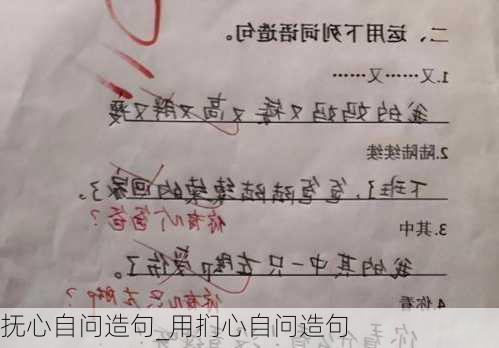 二、运用下列词语造句。
1.又……又……
我的妈妈又矮又高又胖又瘦
2.陆陆续续
下班了,爸爸陆陆续续的回家了。
你有几个爸爸?
3.其中
我的其中一只左脚受伤了。
你有几只左脚?
4.你看
你看什么看
抚心自问造句_用扪心自问造句